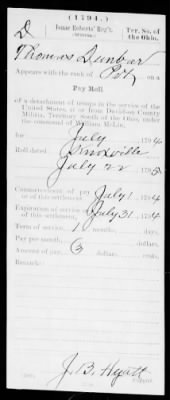 (1794.)
D
Isaac Roberts' Reg't.
Ter. So. of the Ohio.
Thomas Dunbar
Appears with the rank of Pvt, on a
Pay Roll
of a detachment of troops in the service of the
United States, of or from Davidson County
Militia, Territory south of the Ohio, under
the command of William McLin,
for July 1794
Roll dated Knoxville
July 22 1795
Commencement of pay July 1 1794
Expiration of service of this settlement, July 31 1794
Term of service, 1 months, days.
Pay per month, dollars.
Amount of pay, 3 dollars, cents.
Remarks:
J. B. Hyatt
Copyist.